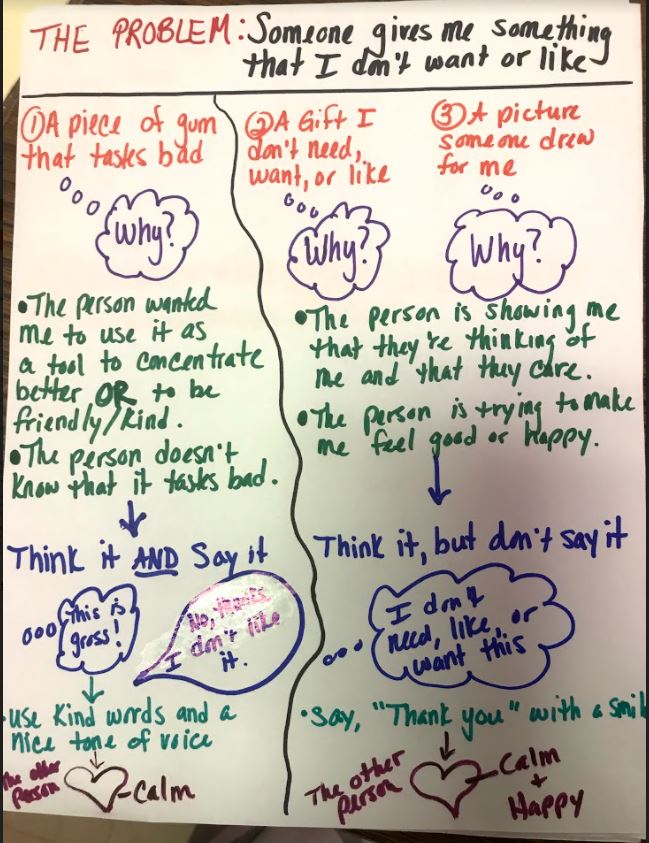 THE PROBLEM: Someone gives me something
that I don't want or like
①A piece of gum
that tasks bad
Why?
•The person wanted
me to use it as
a tool to concentrate
better OR to be
friendly/kind.
•The person doesn't
know that it tasks bad.
Think it AND Say it
This is
gross!
No, thanks
I don't like
it.
•use kind words and a
nice tone of voice
The other
person
Calm
②A Gift I
don't need,
want, or like
Why?
③A picture
someone drew
for me
Why?
•The person is showing me
that they're thinking of
me and that they care.
•The person is trying to make
me feel good or happy.
Think it, but don't say it
I don't
need, like, or
want this
•Say, "Thank you" with a smil
The other
person
Calm
+
Happy